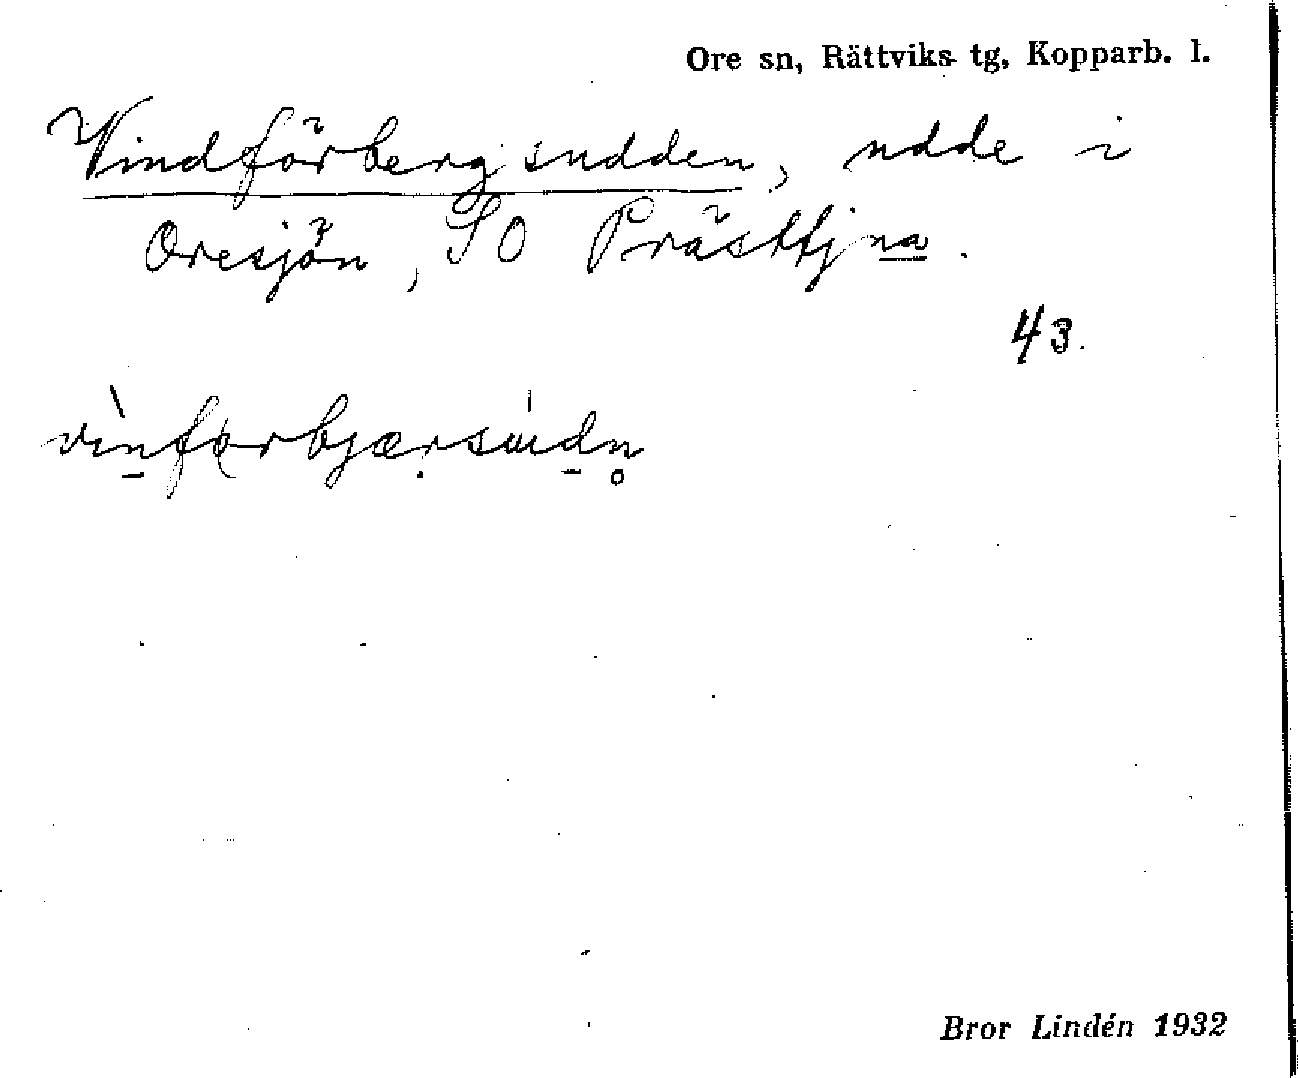 Ore sn, Rättviks tg, Kopparb. l.
Vindförbergsudden, udde i
Oresjön, SO Prästtjna.
43.
vìn̠forbjærsudn̥
Bror Lindén 1932